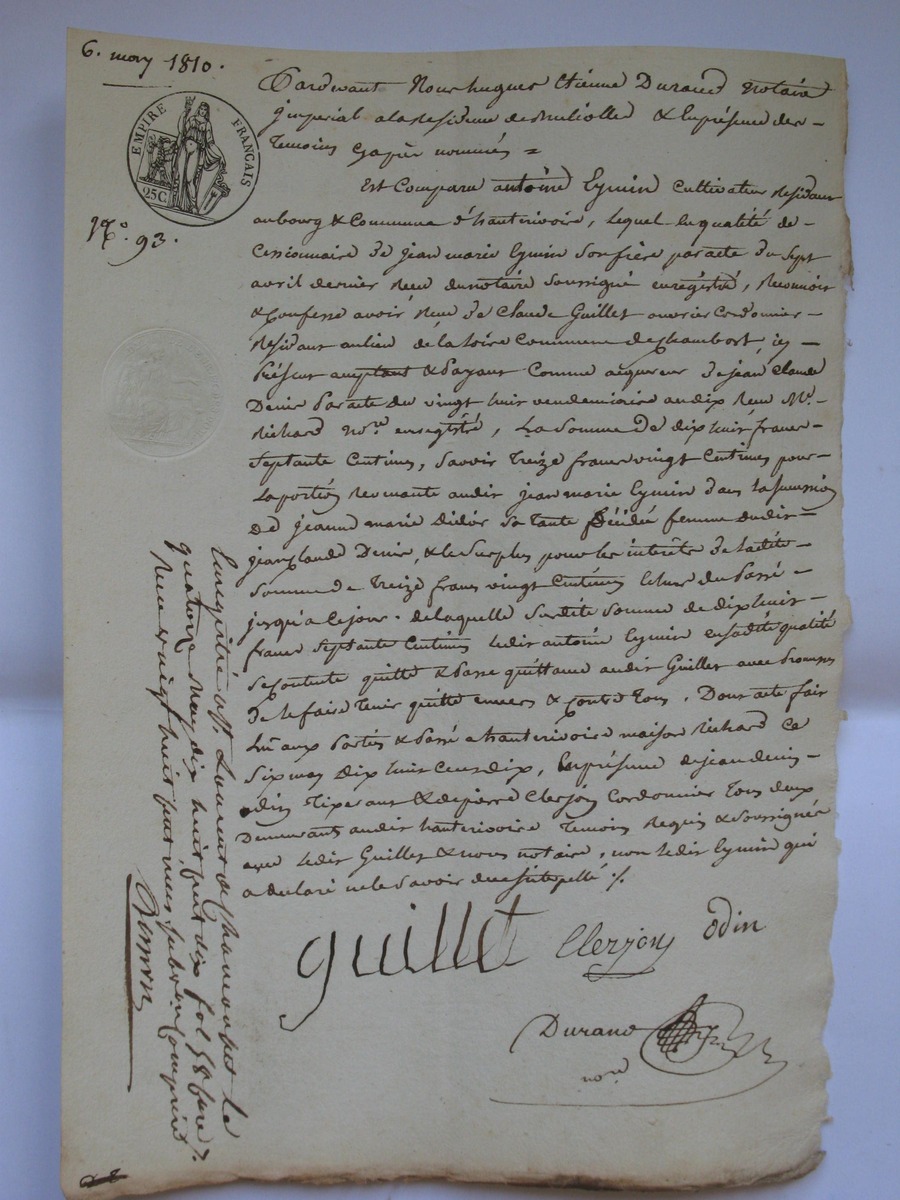 6. may 1810.
EMPIRE FRANÇAIS
25 C.
N.º 93.
Pardevant Nous hugues Etienne Durand Notaire
jmperial a la Residence de & En présence des
Temoins Cy après nommés =
Est Comparu antoine Eymin Cultivateur Residant
au bourg & Commune d'hauterivoire, lequel En qualité de
Cessionnaire de jean marie Eymin Son frère par acte du Sept
avril dernier Recu du notaire Soussigné enregistré, Reconnoit
& Confesse avoir Recu de Claude Guillet ouvrier Cordonnier
Residant au lieu de la Loire Commune de Chambost, icy
Présent acceptant & Payant Comme acquereur de jean Claude
Denis Par acte du vingt huit vendemiaire an dix Recu Me.
Richard nore. enregistré, La Somme de dix huit francs
Septante Centimes, Savoir treize francs vingt Centimes pour
La portion Revenante audit jean marie Eymin dans la succession
De jeanne marie Sa tante Décédée femme dudit
jean Claude Denis, & le Surplus pour les intérêts de ladite
Somme de treize francs vingt Centimes Echus du Passé
jusqu'a Ce jour. de laquelle Susdite Somme de dix huit
francs Septante Centimes ledit antoine Eymin en sadite qualité
Se Contente quitte & Passe quittance audit Guillet avec Promesse
de le faire tenir quitte envers & Contre tous. Dont acte fait
Lu aux Parties & Passé a hauterivoire maison Richard Ce
Six may dix huit Cent dix, En présence de jean denis
odin Tixerant & de pierre Clerjon Cordonnier tous deux
Demeurants audit hauterivoire Temoins Requis & Soussignés
avec ledit Guillet & nous notaire, non ledit Eymin qui
a declaré ne le Savoir de ce interpellé ./.
guillet Clerjon odin
Durand
nore
Enregistré a St. Laurent de Chamousset Le
quatorze May dix huit cent dix fol. 58
Recu vingt huit centimes subvention Comprise